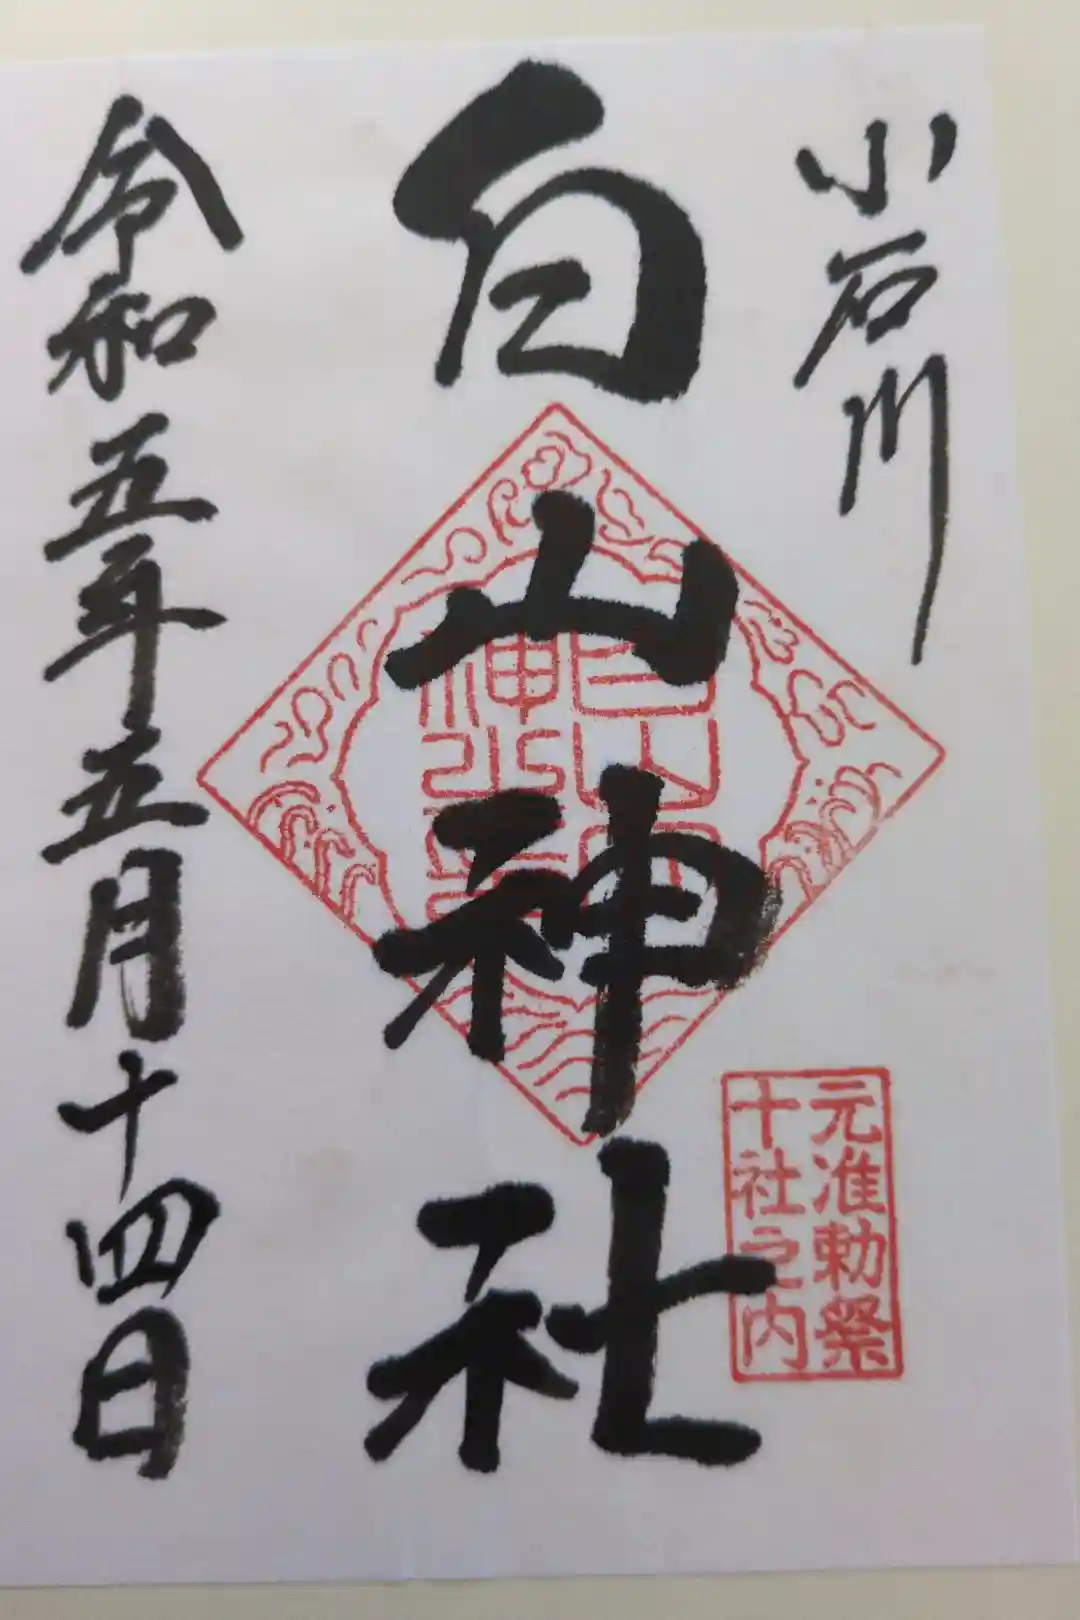 小石川
白山神社
元准勅祭
十社之内
令和五年五月十四日